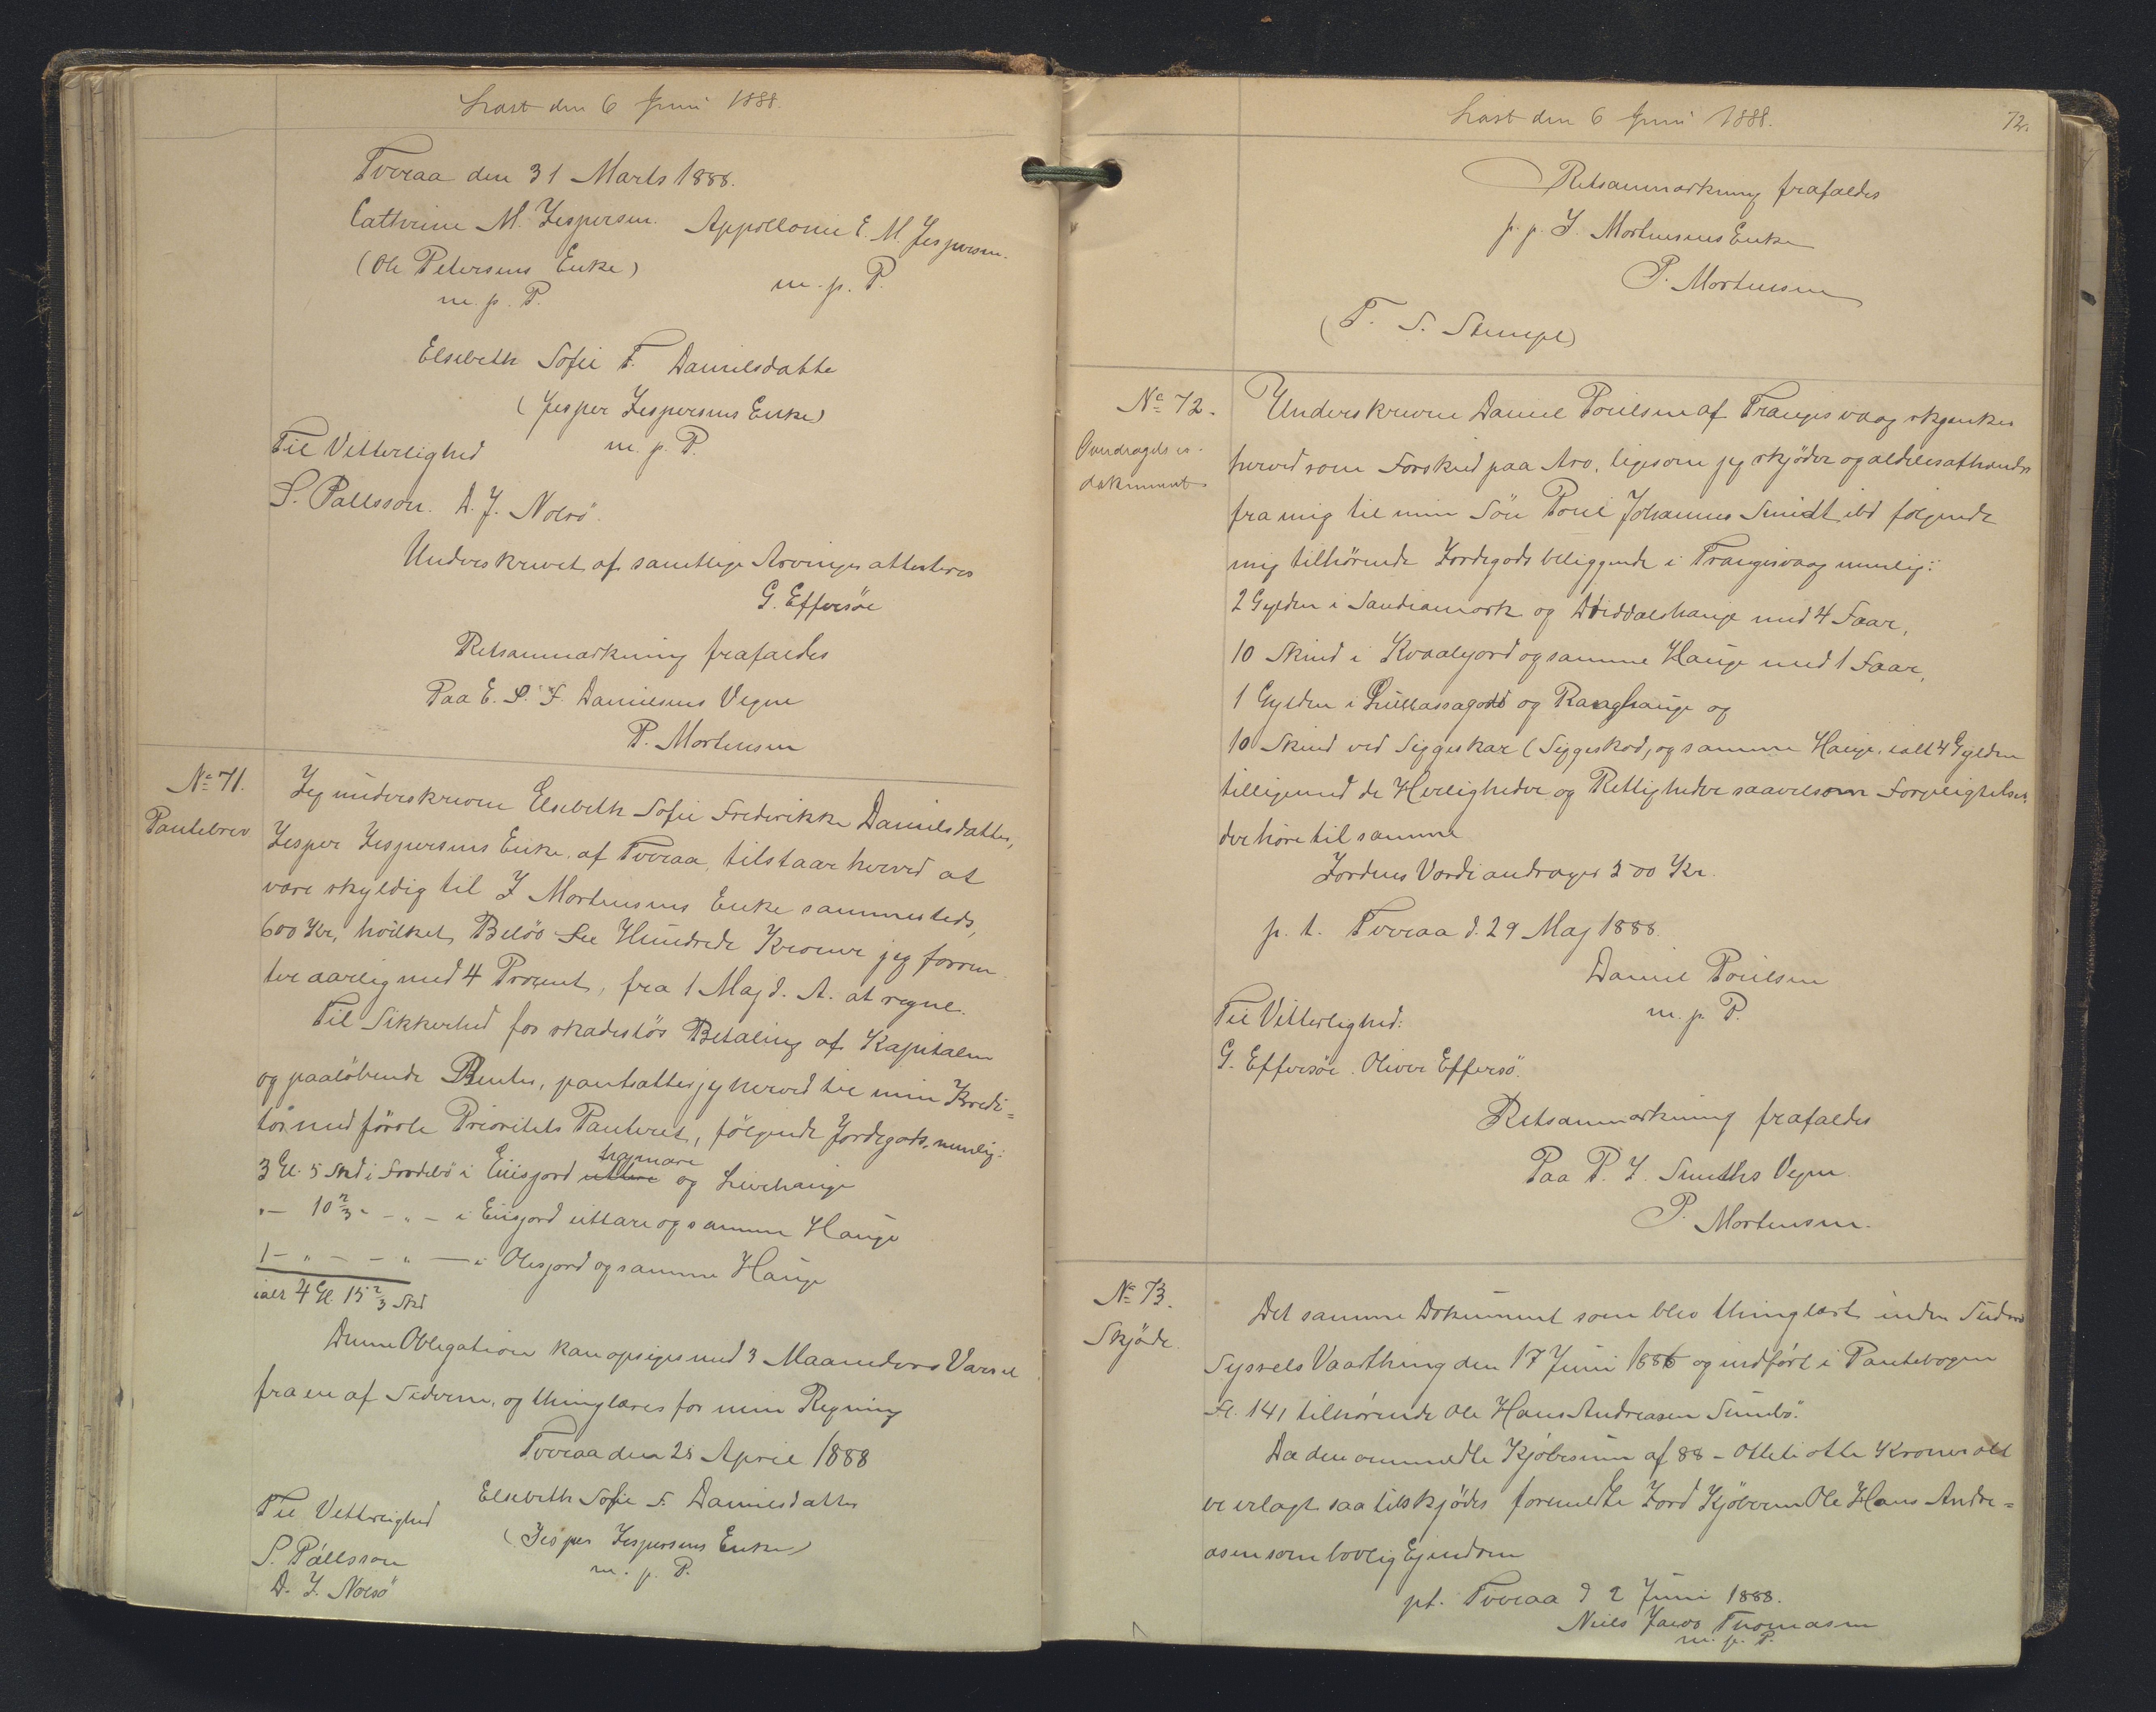 Læst den 6 Juni 1888.
Tveraa den 31 Marts 1888.
Cathrine M. Jespersen. Appollonie E. M. Jespersen.
(Ole Petersens Enke) m. p. P.
m. p. P.
Elsebeth Sofie F. Danielsdatte
(Jesper Jespersens Enke)
Til Vitterlighed m. p. P.
S. Pallsson. D. J. Nolsö.
Underskrevet af samtlige Arvinger attesteres
G. Effersöe
Retsanmærkning frafaldes
Paa E. S. F. Danielsens Vegne
P. Mortensen
No 71.
Pantebrev
Jeg underskrevne Elsebeth Sofie Frederikke Danielsdatter,
Jesper Jespersens Enke, af Tveraa, tilstaar herved at
være skyldig til J Mortensens Enke sammesteds,
600 Kr, hvilket Beløb Sex Hundrede Kroner jeg forren-
ter aarlig med 4 Procent, fra 1 Maj d. A. at regne.
Til Sikkerhed for skadesløs Betaling af Kapitalen
og paaløbende Renter, pantsætter jeg herved til min Kredi=
tor med første Prioritets Panteret, følgende Jordegods, nemlig:
3 Gl. 5 Skd i Frodebö i Eiisjord uttere hejmare og Liverhauge
" - 10 2/3 " - " - i Eiisjord uttare og samme Hauge
1 - " - - " - i Olesjord og samme Hauge
ialt 4 Gl. 15 2/3 Skd
Denne Obligation kan opsiges med 3 Maaneders Varsel
fra en af Siderne, og thinglæses for min Regning
Tveraa den 28 April 1888
Elsebeth Sofie F. Danielsdatter
Til Vitterlighed (Jesper Jespersens Enke)
S. Pállsson m. p. P.
D. J. Nolsö
Læst den 6 Juni 1888. 72.
Retsanmærkning frafaldes
p. p. J. Mortensens Enke
P. Mortensen
(T. S. Stempel)
No 72.
Overdragelses-
dokument
Underskrevne Daniel Poulsen af Trangisvaag skjenker
herved som Forskud paa Arv, ligesom jeg skjøder og aldeles afhænder
fra mig til min Sön Poul Johannes Smidt ibd følgende
mig tilhørende Jordegods beliggende i Trangisvaag nemlig:
2 Gylden i Sandiamork og Düiddalshauge med 4 Faar,
10 Skind i Kvaalejord og samme Hauge med 1 Faar,
1 Gylden i og Raaghauge og
10 Skind ved Siggeskar (Siggeskod, og samme Hauge, ialt 4 Gylden
tilligemed de Herligheder og Rettigheder saavelsom Forpligtelser,
der høre til samme
Jordens Værdi andrager 500 Kr.
p. t. Tveraa d. 29 Maj 1888.
Daniel Poulsen
Til Vitterlighed: m. p. P.
G. Effersöe. Oliver Effersö.
Retsanmærkning frafaldes
Paa P. J. Smiths Vegne.
P. Mortensen.
No 73.
Skjöde.
Det samme Dokument som blev thinglæst inden Suderø
Syssels Vaarthing den 17 Juni 1886 og indført i Pantebogen
Fl. 141 tilhørende Ole Hans Andreasen Sumbö.
Da den ommeldte Kjøbesum af 88 - Otteti otte Kroner alt
er erlagt saa tilskjødes formeldte Jord Kjøberen Ole Hans Andre=
asen som lovlig Ejendom
pt. Tveraa d 2 Juni 1888.
Niels Jacob Thomasen
m. p. P.